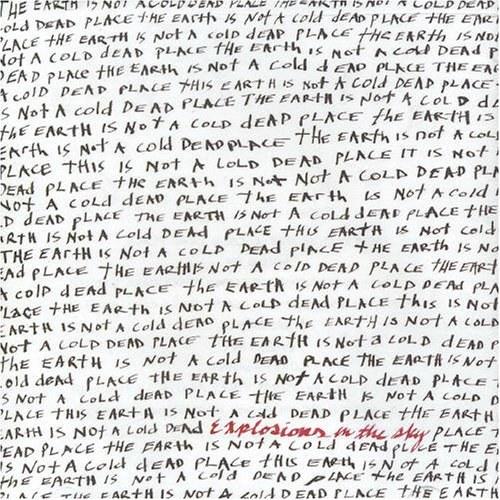 THE EARTH IS NOT A COLD DEAD PLACE THE EARTH IS NOT A COLD DEAD
OLD DEAD PLACE THE EARTH IS NOT A COLD DEAD PLACE THE EAR
LACE THE EARTH IS NOT A COLD DEAD PLACE THE EARTH IS NO
NOT A COLD DEAD PLACE THE EARTH IS NOT A COLD DEAD P
DEAD PLACE THE EARTH IS NOT A COLD DEAD PLACE THE EA
A COLD DEAD PLACE THIS EARTH IS NOT A COLD DEAD PLACE
S NOT A COLD DEAD PLACE THE EARTH IS NOT A COLD D
THE EARTH IS NOT A COLD DEAD PLACE THE EARTH IS
EARTH IS NOT A COLD DEAD PLACE THE EARTH IS NOT A COL
PLACE THIS IS NOT A COLD DEAD PLACE IT IS NOT
DEAD PLACE THE EARTH IS NOT NOT A COLD DEAD PLA
NOT A COLD DEAD PLACE THE EARTH IS NOT A COLD
D DEAD PLACE THE EARTH IS NOT A COLD DEAD PLACE THE
RTH IS NOT A COLD DEAD PLACE THIS EARTH IS NOT COLD
THE EARTH IS NOT A COLD DEAD PLACE THE EARTH IS NO
EAD PLACE THE EARTH IS NOT A COLD DEAD PLACE THE EART
A COLD DEAD PLACE THE EARTH IS NOT A COLD DEAD PLA
LACE THE EARTH IS NOT A COLD DEAD PLACE THIS IS NOT
EARTH IS NOT A COLD DEAD PLACE THE EARTH IS NOT A COLD
NOT A COLD DEAD PLACE THE EARTH IS NOT A COLD DEAD P
THE EARTH IS NOT A COLD DEAD PLACE THE EARTH IS NOT
OLD DEAD PLACE THE EARTH IS NOT A COLD DEAD PLACE
S NOT A COLD DEAD PLACE THE EARTH IS NOT A COLD D
PLACE THIS EARTH IS NOT A COLD DEAD PLACE THE EARTH
EARTH IS NOT A COLD DEAD Explosions in the sky PLACE T
DEAD PLACE THE EARTH IS NOT A COLD DEAD PLACE THE E
IS NOT A COLD DEAD PLACE THIS EARTH IS NOT A COLD
THE EARTH IS NOT A COLD DEAD PLACE THE EARTH IS
PLACE THE EARTH IS NOT A COLD DEAD PLACE THE EART